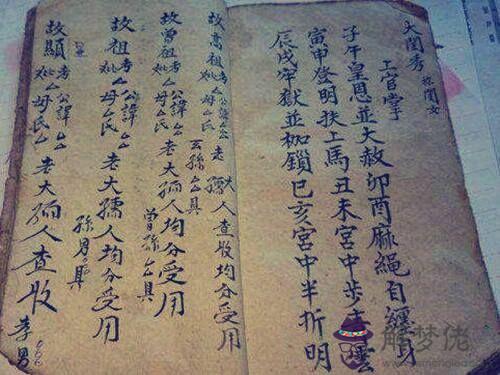 大閨秀 称閨女
上官掌
子午皇恩並大赦卯酉麻繩自纏身
寅申登明扶上馬丑未宮中步青雲
辰戌牢獄並枷鎖巳亥宮中半折明
故高祖考公諱厶厶妣厶母厶氏老大孺人查收均分受用
玄孫厶厶具
故曾祖考公諱厶厶妣厶母厶氏老大孺人均分受用
曾孫厶具
故祖考公諱厶厶妣厶母厶氏老大孺人均分受用
孫男具
故顯考公諱厶厶妣厶母厶氏老大孺人查收
孝男
解梦佬